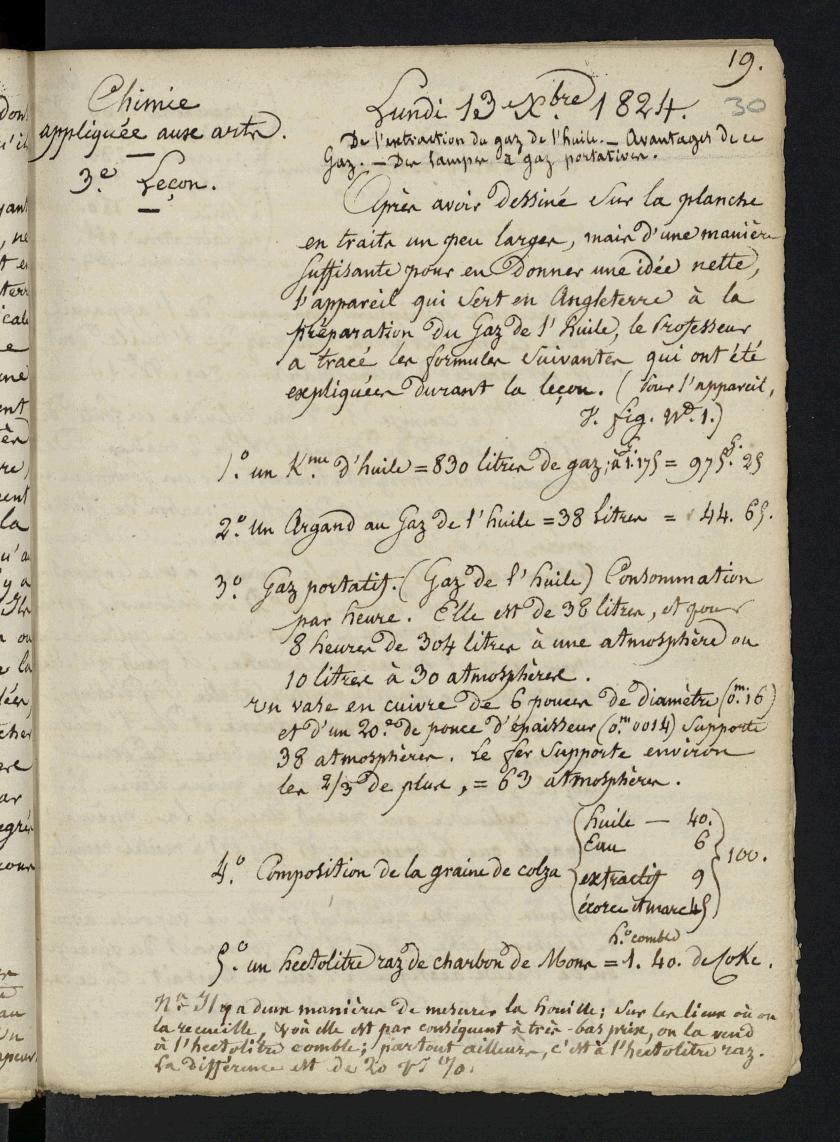 19.
30
Chimie
appliquée aux arts.
3.e Leçon.
Lundi 13 Xbre 1824.
De l'extraction du gaz de l'huile. — Avantages de ce
Gaz. — Des lampes à gaz portatives.
Après avoir dessiné sur la planche
en traits un peu larges, mais d'une manière
suffisante pour en donner une idée nette,
l'appareil qui sert en Angleterre à la
préparation du Gaz de l'huile, le Professeur
a tracé les formules suivantes qui ont été
expliquées durant la leçon. (Pour l'appareil,
V. fig. N.o 1.)
1.o un K.me d'huile = 830 litres de gaz, à 1.g 175 = 975.g 25
2.o un Argand au Gaz de l'huile = 38 litres = 44. 65.
3.o Gaz portatif. (Gaz de l'huile) Consommation
par heure. Elle est de 38 litres, et pour
8 heures de 304 litres à une atmosphère ou
10 litres à 30 atmosphères.
Un vase en cuivre de 6 pouces de diamètre (0.m 16)
et d'un 20.e de pouce d'épaisseur (0.m 0014) supporte
38 atmosphères. Le fer supporte environ
les 2/3 de plus, = 63 atmosphères.
4.o Composition de la graine de colza
huile — 40.
Eau 6
extractif 9
écorce et marc 45
100.
5.o un hectolitre raz de charbon de Mons = 1. h.o comble 40. de Coke.
N.a Il y a deux manières de mesurer la houille; sur les lieux où on
la recueille, & où elle est par conséquent à très-bas prix, on la vend
à l'hectolitre comble; partout ailleurs, c'est à l'hectolitre raz.
La différence est de 20 p.r %.